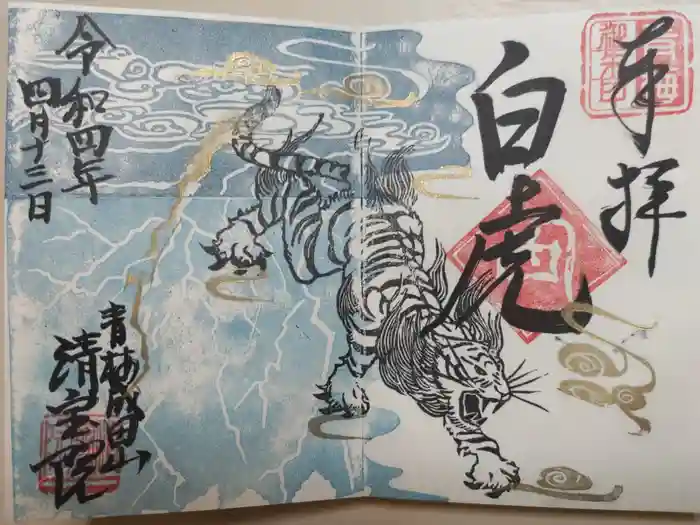 奉拝
白虎
令和四年
四月十三日
青梅成田山
清宝院